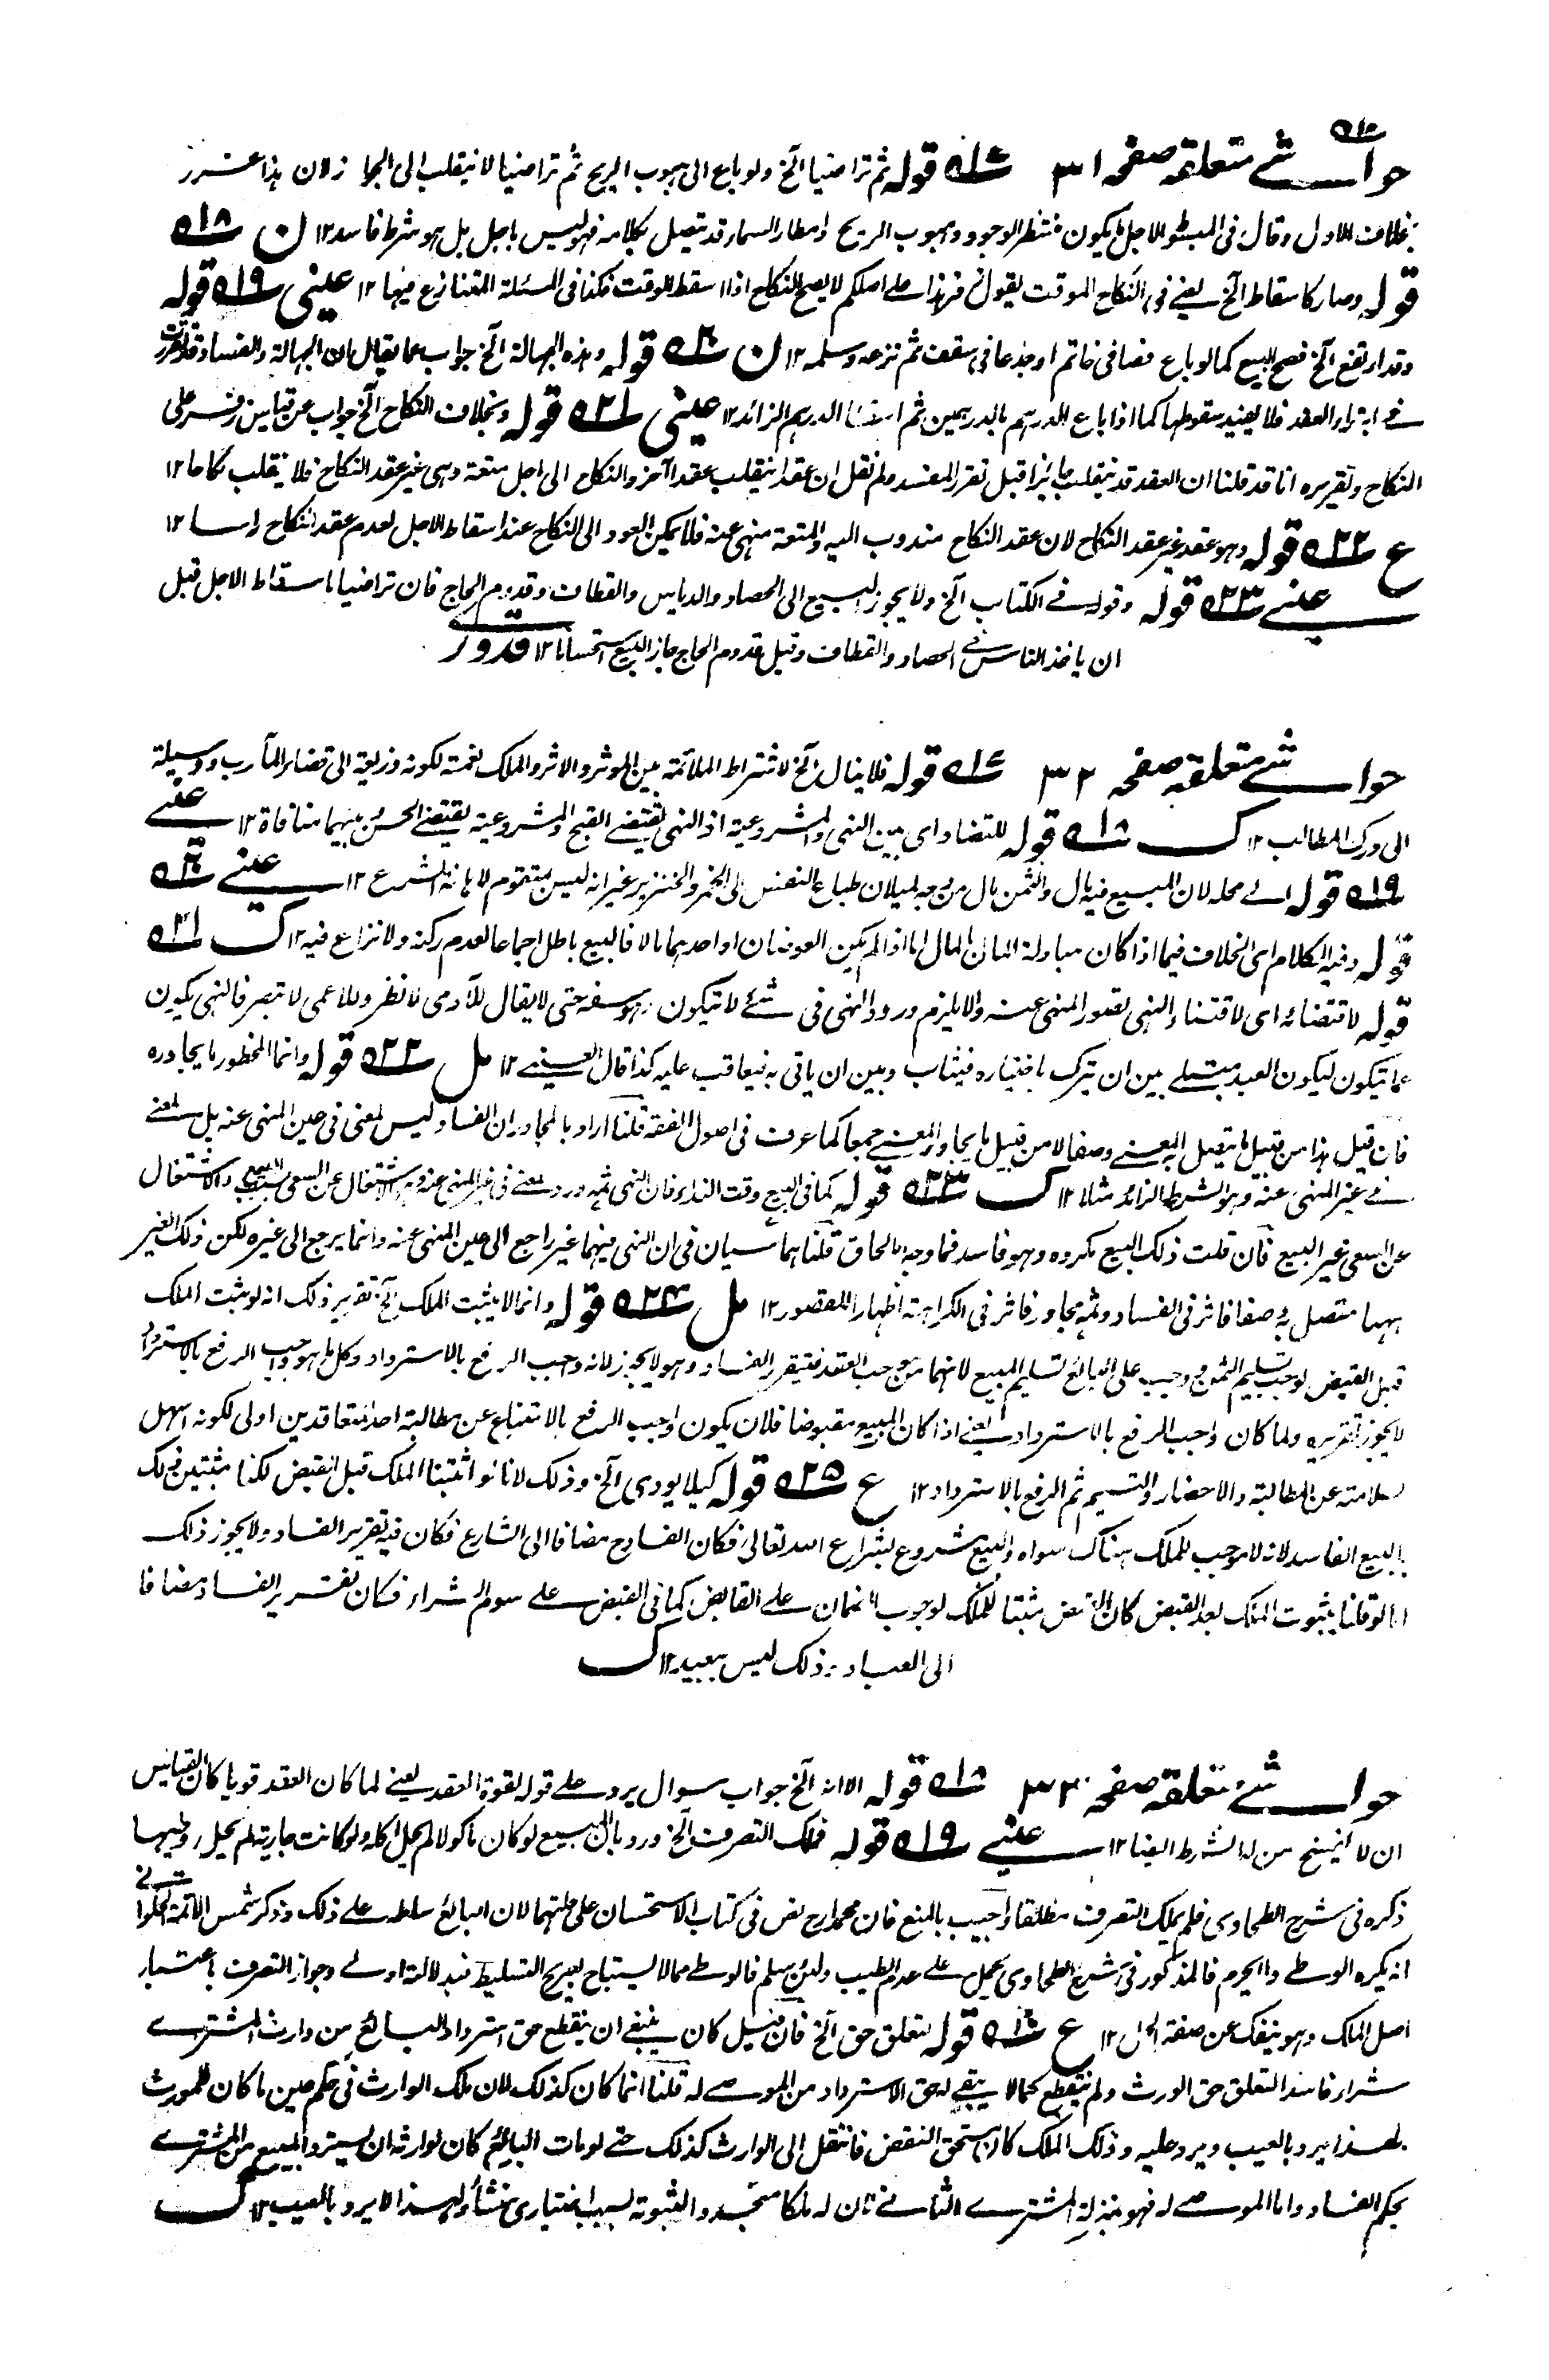 حواشے متعلقہ صفحہ ٣١ ١٧ قوله ثم تراضيا آلخ ولو باع الى هبوب الريح ثم تراضيا لا ينقلب الى الجواز لان هذا
بخلاف الاول وقال فى المبسوط الاجل ما يكون منتظر الوجود وهبوب الريح وامطار السماء قد يتصل بكلامه فهو ليس باجل بل هو شرط فاسد ١٢ ن ١٨
قوله وصار كاسقاط آلخ يعنے فى النكاح الموقت يقول فهذا على اصلكم لا يصح النكاح اذا اسقط الوقت فكذا فى المسئلة المتنازع فيها ١٢ عينى ١٩ قوله
وقد ارتفع آلخ فصح البيع كما لو باع فصا فى خاتم او جذعا فى سقف ثم نزعه وسلمه ١٢ ن ٢٠ قوله وهذه الجهالة آلخ جواب عما يقال ان الجهالة والفساد قد تقررت
فے ابتداء العقد فلا يفيد سقوطها كما اذا باع الدرهم بالدرهمين ثم اسقطا الدرهم الزائد ١٢ عينى ٢١ قوله وبخلاف النكاح آلخ جواب عن قياس زفر على
النكاح وتقريره انا قد قلنا ان العقد قد ينقلب جائزا قبل تقرر المفسد ولم نقل ان عقدا ينقلب عقدا آخر والنكاح الى اجل متعة وهى غير عقد النكاح فلا ينقلب نكاحا ١٢
ع ٢٢ قوله وهو عقد غير عقد النكاح لان عقد النكاح مندوب اليه والمتعة منهى عنه فلا يمكن العود الى النكاح عند اسقاط الاجل لعدم عقد النكاح راسا ١٢
عينے ٢٣ قوله وقوله فے الكتاب آلخ ولا يجوز البيع الى الحصاد والدياس والقطاف وقدوم الحاج فان تراضيا باسقاط الاجل قبل
ان ياخذ الناس فے الحصاد والقطاف وقبل قدوم الحاج جاز البيع استحسانا ١٢ قدورے
حواشے متعلقہ صفحہ ٣٢ ١٧ قوله فلا ينال آلخ لاشتراط الملائمة بين المؤثر والاثر والملك نعمة لكونه ذريعة الى قضاء المآرب ووسيلة
الى درك المطالب ١٢ ك ١٨ قوله للتضاد اى بين النهى والمشروعية اذ النهى يقتضے القبح والمشروعية يقتضے الحسن بينهما منافاة ١٢ عينے
١٩ قوله فے محله لان المبيع فيه مال والثمن مال من وجه لميلان طباع النفس الى الخمر والخنزير غير انه ليس متقوم لاهانة الشرع ١٢ عينے ٢٠
قوله وفيه الكلام اى الخلاف فيما اذا كان مبادلة المال بالمال اما اذا لم يكن العوضان او احدهما مالا فالبيع باطل اجماعا لعدم ركنه ولا نزاع فيه ١٢ ك ٢١
قوله لاقتضائه اى لاقتضاء النهى تصور المنهى عنه والا يلزم ورود النهى فى شئے لا يتكون وهو سفه حتى لا يقال للآدمى لا تطر وللاعمى لا تبصر فالنهى يكون
عما يتكون ليكون العبد مبتلے بين ان يترك باختياره فيثاب وبين ان ياتى به فيعاقب عليه كذا قال العينے ١٢ مل ٢٢ قوله وانما المحظور ما يجاوره
فان قيل هذا من قبيل ما يتصل به المعنے وصفا لا من قبيل ما يجاور المعنے جمعا كما عرف فى اصول الفقه قلنا اراد بالمجاور ان الفساد ليس لمعنى فى عين المنهى عنه بل لمعنے
فے غير المنهى عنه وهو الشرط الزائد مثلا ١٢ ك ٢٣ قوله كما فى البيع وقت النداء فان النهى ثمه ورد لمعنے فى غير المنهى عنه وهو الاشتغال عن السعى بسبب البيع والاشتغال
عن السعى غير البيع فان قلت ذلك البيع مكروه وهو فاسد فما وجه الحاق قلنا هما سيان فى ان النهى فيهما غير راجع الى عين المنهى عنه وانما يرجع الى غيره لكن ذلك الغير
ههنا متصل به وصفا فاثر فى الفساد وثمه مجاور فاثر فى الكراهة اظهارا للقصور ١٢ مل ٢٤ قوله وانما لا يثبت الملك آلخ تقرير ذلك انه لو يثبت الملك
قبل القبض لوجب تسليم الثمن ووجب على البائع تسليم المبيع لانهما من موجب العقد فيتقرر الفساد وهو لا يجوز لانه واجب الرفع بالاسترداد وكل ما هو واجب الرفع بالاسترداد
لا يجوز تقريره ولما كان واجب الرفع بالاسترداد يعنے اذا كان المبيع مقبوضا فلان يكون واجب الرفع بالامتناع عن مطالبة احد المتعاقدين اولى لكونه اسهل
لسلامته عن المطالبة والاحضار والتسليم ثم الرفع بالاسترداد ١٢ ع ٢٥ قوله كيلا يودى آلخ وذلك لانا لو اثبتنا الملك قبل القبض لكنا مثبتين ذلك
بالبيع الفاسد لانه لا موجب للملك هناك سواه والبيع مشروع بشرع الله تعالى فكان الفساد مضافا الى الشارع فكان فيه تقرير الفساد ولا يجوز ذلك
اما لو قلنا بثبوت الملك بعد القبض كان القبض مثبتا للملك لوجوب الضمان علے القابض كما فى القبض علے سوم الشراء فكان تقرير الفساد مضافا
الى العباد وذلك ليس ببعيد ١٢ ك
حواشے متعلقہ صفحہ ٣٣ ١٨ قوله الا انه آلخ جواب سوال يرد علے قوله لقوة العقد يعنے لما كان العقد قويا كان القياس
ان لا ينفسخ من له الشرط ايضا ١٢ عينے ١٩ قوله فملك التصرف آلخ ورد بان المبيع لو كان ماكولا لم يحل اكله ولو كانت جارية لم يحل وطيها
ذكره فى شرح الطحاوى فلم يملك التصرف مطلقا واجيب بالمنع فان محمدا رح نص فى كتاب الاستحسان على حلتهما لان البائع سلطه علے ذلك وذكر شمس الائمة الحلوانے
انه يكره الوطے ولا يحرم فالمذكور فى شرح الطحاوى يحمل علے عدم الطيب ولئن سلم فالوطے مما لا يستباح بصريح التسليط فبدلالته اولے وجواز التصرف باعتبار
اصل الملك وهو ينفك عن صفة الحل ١٢ ع ١٨ قوله لتعلق حق آلخ فان قيل كان ينبغے ان ينقطع حق استرداد البائع من وارث المشترے
شراء فاسدا لتعلق حق الورث ولم ينقطع كما لا يبقے له حق الاسترداد من الموصے له قلنا انما كان كذلك لان ملك الوارث فى حكم عين ما كان للمورث
لهذا يرد بالعيب ويرد عليه وذلك الملك كان مستحق النقض فانتقل الى الوارث كذلك حتے لو مات البائع كان لوارثه ان يسترد المبيع من المشترے
بحكم الفساد واما الموصے له فهو بمنزلة المشترے الثانے فان له ملكا متجدد الثبوته بسبب اختيارى منشأ ولهذا لا يرد بالعيب ١٢ ك